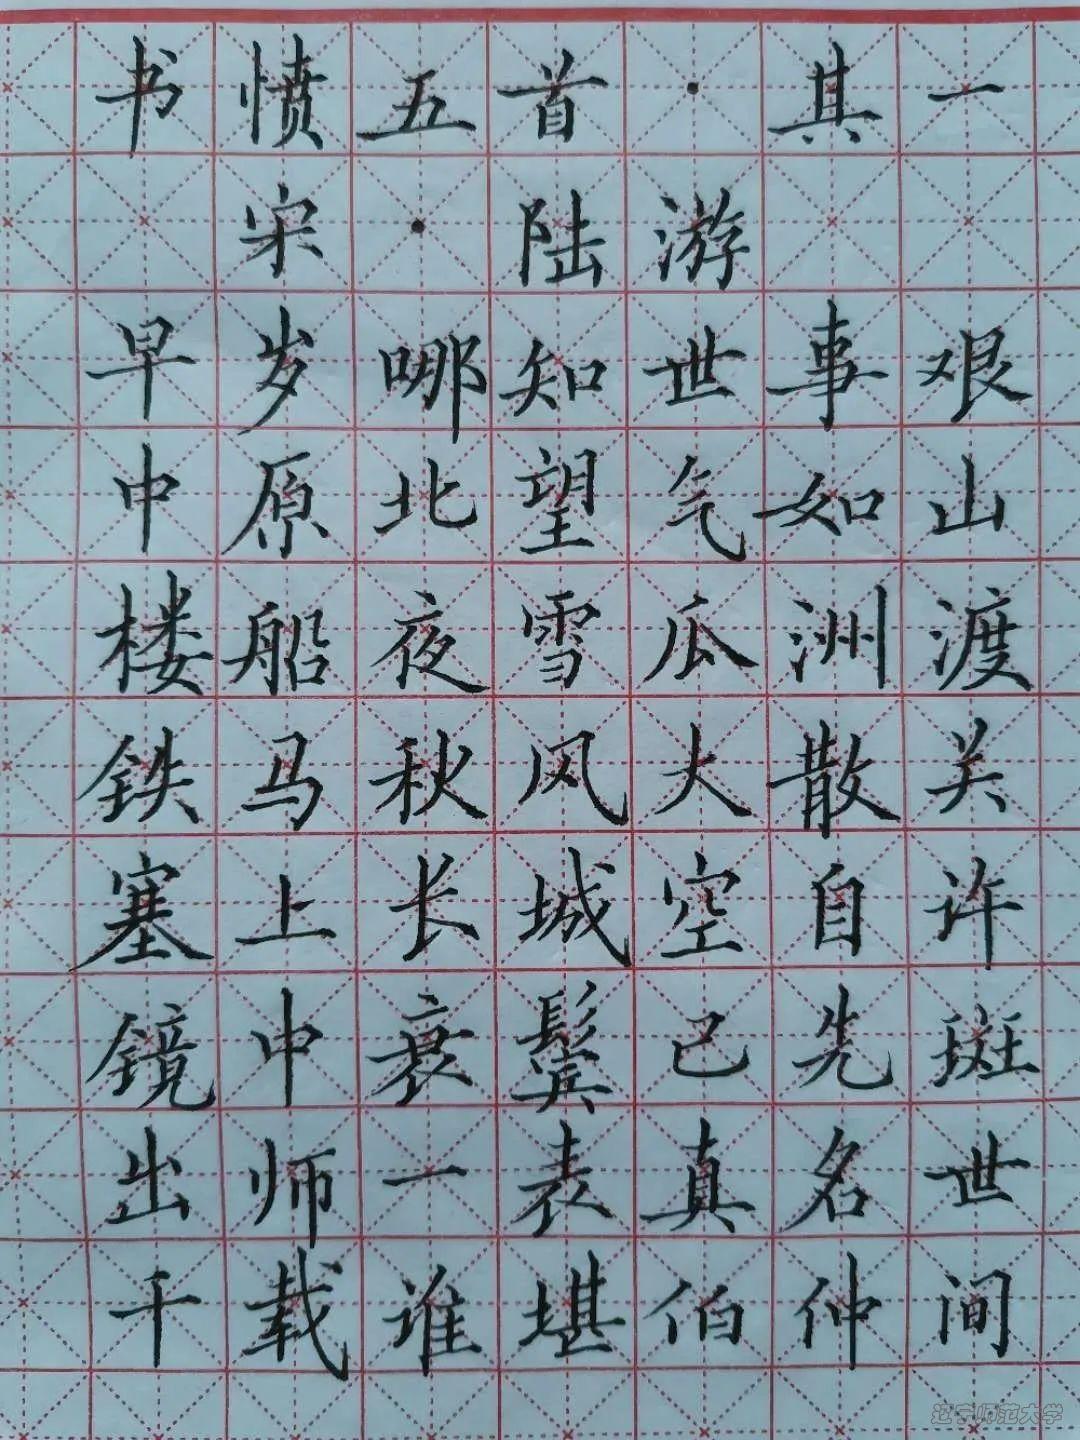 书愤五首·其一
宋·陆游
早岁哪知世事艰
中原北望气如山
楼船夜雪瓜洲渡
铁马秋风大散关
塞上长城空自许
镜中衰鬓已先斑
出师一表真名世
千载谁堪伯仲间
辽宁师范大学